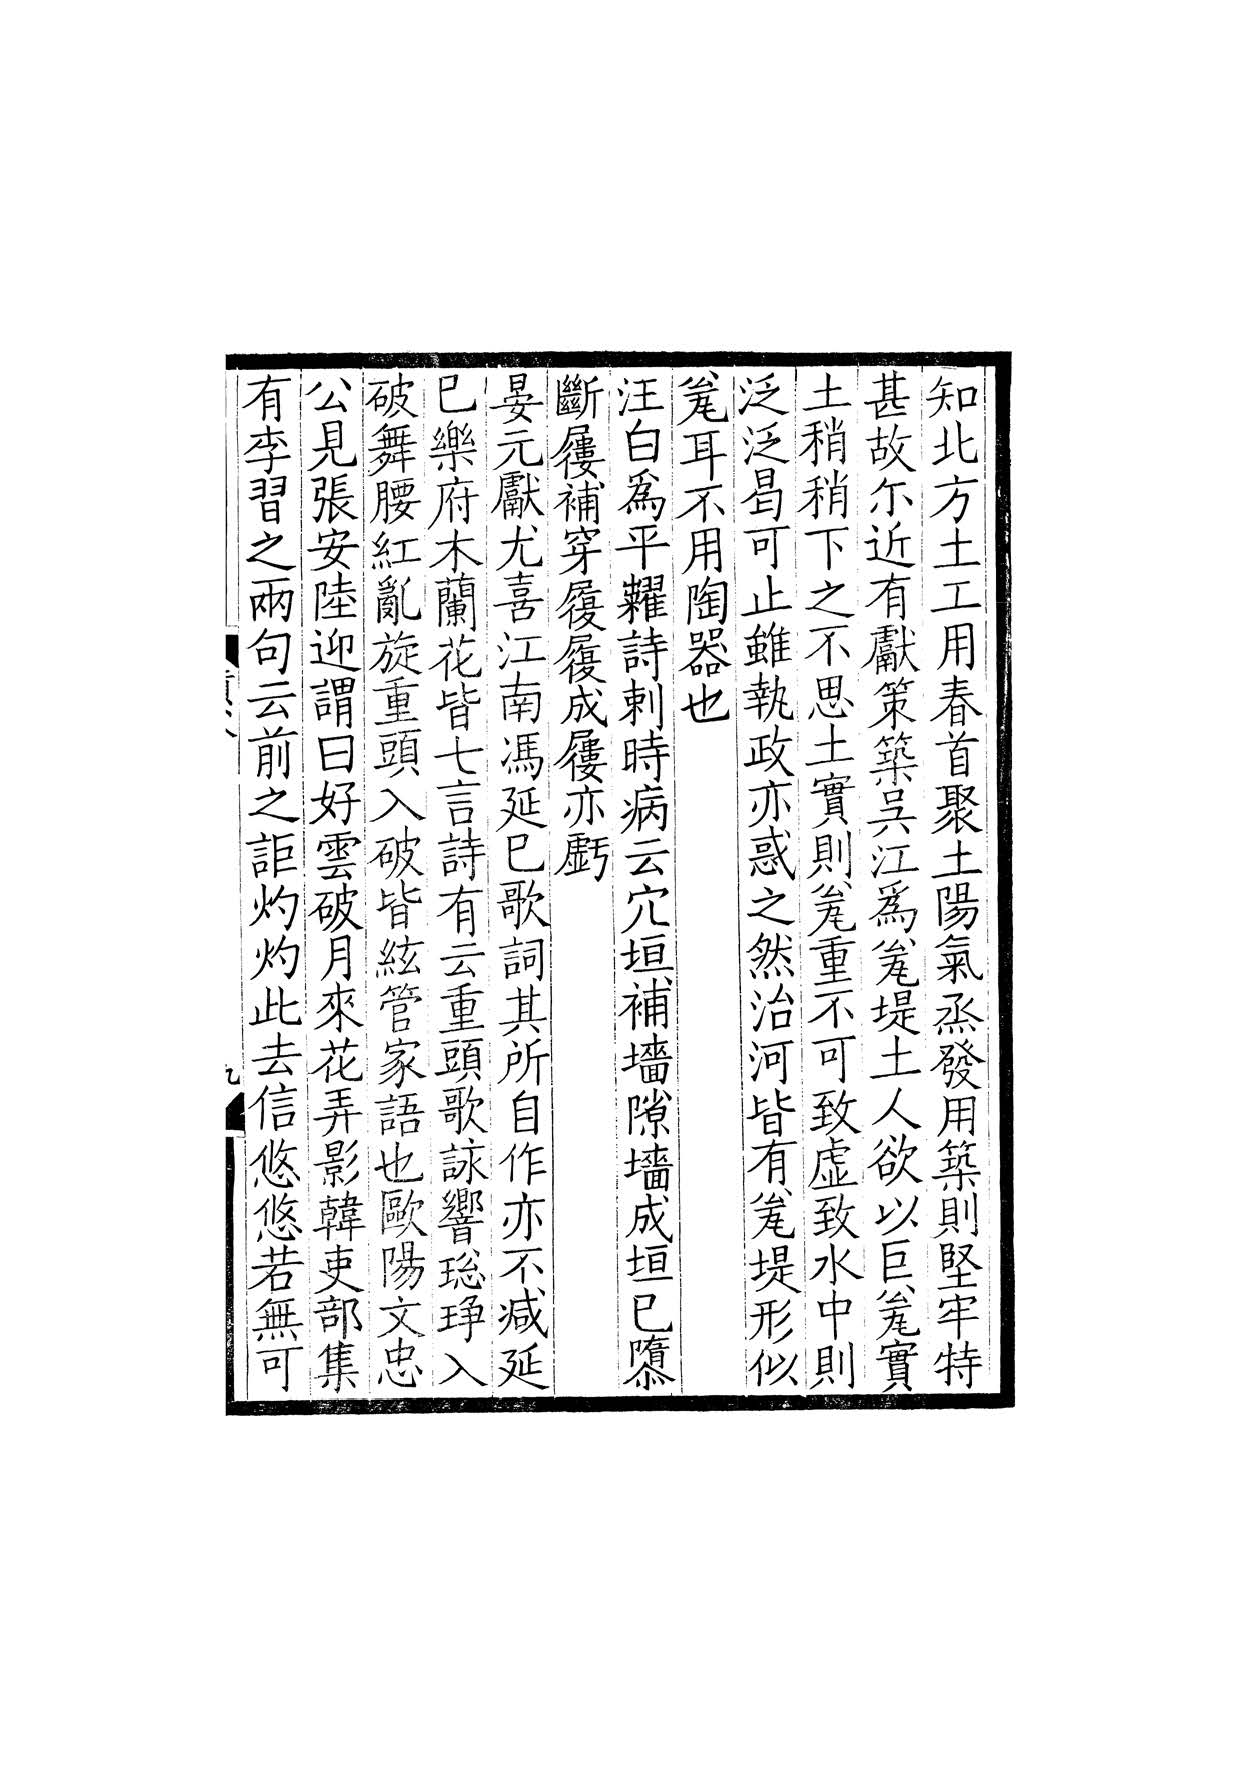 知北方土工用春首聚土陽氣烝發用築則堅牢特
甚故尓近有獻策築吳江爲㼜堤土人欲以巨㼜實
土稍稍下之不思土實則㼜重不可致虛致水中則
泛泛曷可止雖執政亦惑之然治河皆有㼜堤形似
㼜耳不用陶器也
汪白爲平糶詩剌時病云穴垣補墻隙墻成垣已隳
斷屨補穿履履成屨亦虧
晏元獻尤喜江南馮延巳歌詞其所自作亦不减延
巳樂府木蘭花皆七言詩有云重頭歌詠響璁琤入
破舞腰紅亂旋重頭入破皆絃管家語也歐陽文忠
公見張安陸迎謂曰好雲破月來花弄影韓吏部集
有李習之兩句云前之詎灼灼此去信悠悠若無可
九